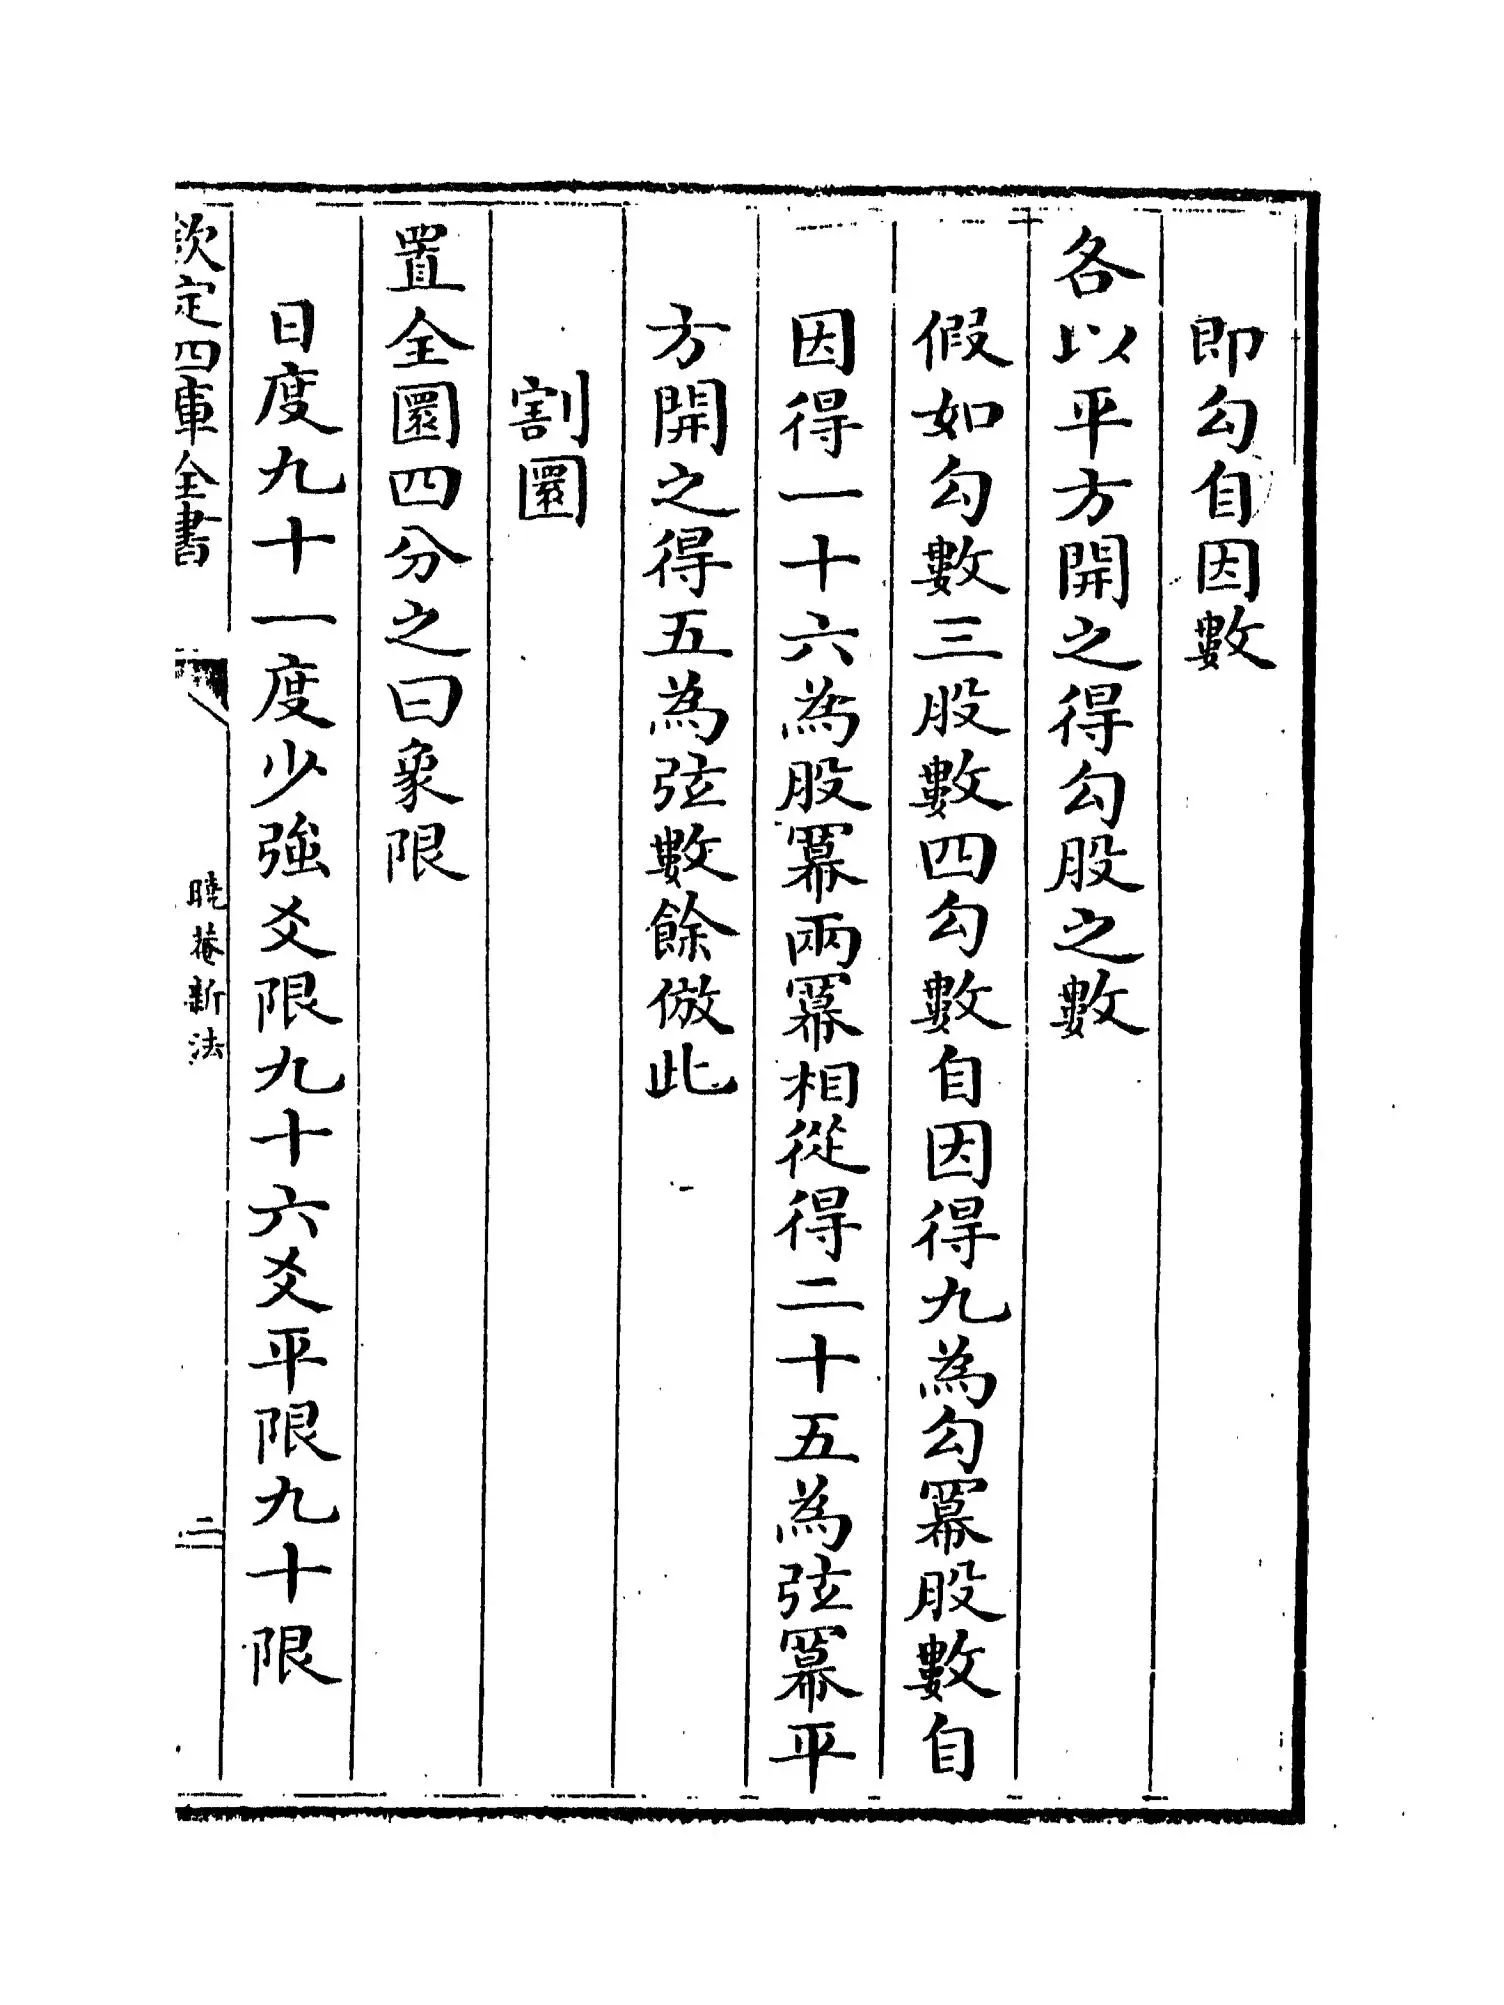 即勾自因數
各以平方開之得勾股之數
假如勾數三股數四勾數自因得九為勾冪股數自
因得一十六為股冪兩冪相從得二十五為弦冪平
方開之得五為弦數餘倣此
割圜
置全圜四分之曰象限
日度九十一度少強爻限九十六爻平限九十限
欽定四庫全書
曉菴新法
二